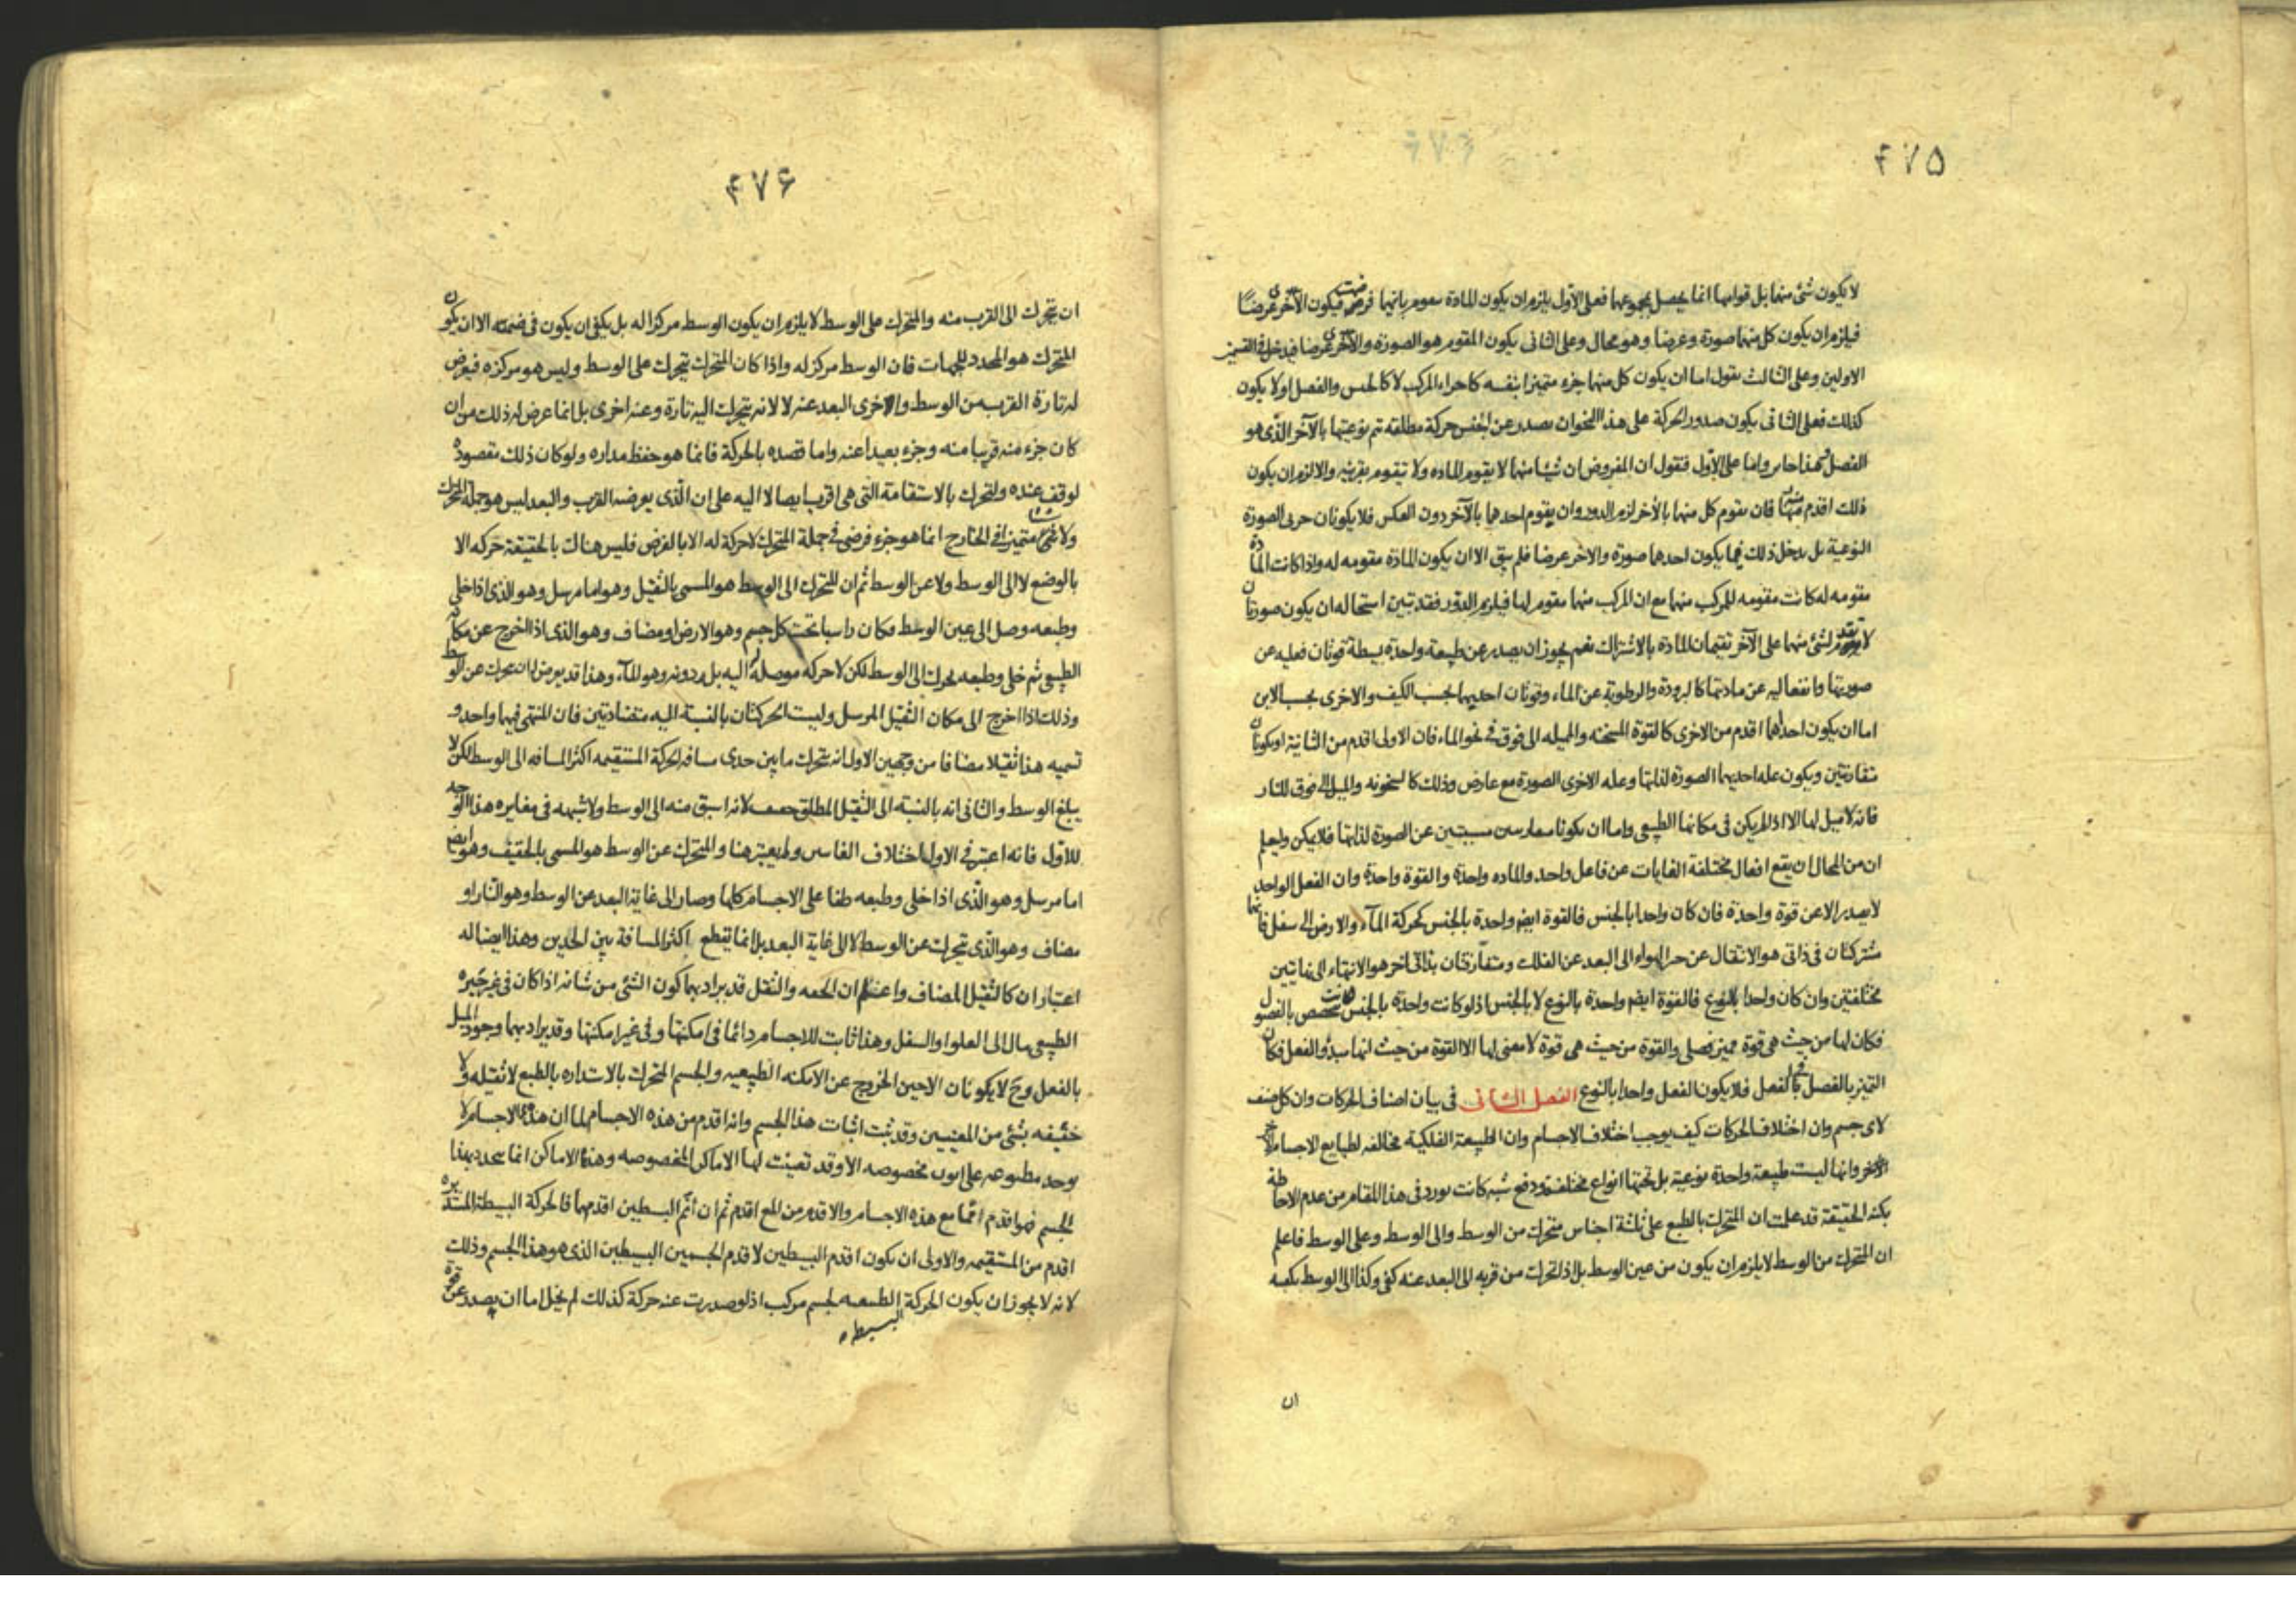 ۴۷۵
لا يكون شئ منها بل قوامها انما يحصل بمجموعها فعلى الاول يلزم ان يكون المادة بايهما فرضت فيكون الاخرى عرضا
فيلزم ان يكون كل منهما صورة وعرضا وهو محال وعلى الثانى يكون المقوم هو الصورة والاخرى عرضا فيدخل فى القسمين
الاولين وعلى الثالث نقول اما ان يكون كل منهما جزء متميزا بنفسه كاجزاء المركب لا كالجنس والفصل اولا يكون
كذلك فعلى الثانى يكون صدور الحركة على هذا النحو ان يصدر عن الجنس حركة مطلقة تتم نوعيتها بالآخر الذى هو
الفصل فهذا جايز واما على الاول فنقول ان المفروض ان شيئا منهما لا يقوم المادة ولا تتقوم بقرينه والا لزم ان يكون
ذلك اقدم فان يقوم كل منهما بالاخر لزم الدور وان يقوم احدهما بالآخر دون العكس فلا يكونان الصورة
النوعية بل يدخل ذلك فيما يكون احدهما صورة والاخر عرضا فلم يبق الا ان يكون المادة مقومه له واذا كانت المادة
مقومه له كانت مقومه للمركب منهما مع ان المركب منهما مقوم لها فيلزم الدور فقد تبين استحاله ان يكون صورتان
لا تقدم لشئ منهما على الآخر تقيمان المادة بالاشتراك نعم يجوز ان يصدر عن طبيعة واحدة بسيطة قوتان فعليه عن
صورتها وانفعاليه عن مادتها كالبرودة والرطوبة عن الماء وقوتان احديهما بحسب الكيف والاخرى بحسب الاين
اما ان يكون احدهما اقدم من الاخرى كالقوة المسخنه والميله الى فوق فى نحو الماء فان الاولى اقدم من الثانية او يكونان
متقارنتين ويكون علة احديهما الصورة لذاتها وعلة الاخرى الصورة مع عارض وذلك كالسخونه والميل الى فوق للنار
فانه لا ميل لها الا اذا لم يكن فى مكانها الطبيعى واما ان يكونا مسببتين عن الصورة لذاتها فلا يمكن وليعلم
ان من المحال ان يقع افعال مختلفة الغايات عن فاعل واحد والماده واحدة والقوة واحدة وان الفعل الواحد
لا يصدر الا عن قوة واحدة فان كان واحدا بالجنس فالقوة ايضا واحدة بالجنس كحركة المآء والارض الى سفل فانهما
مشتركتان فى ذاتى هو الانتقال عن حيز الهواء الى البعد عن الفلك ومتفارقتان بذاتى اخر هو الانتهاء الى نهايتين
مختلفتين وان كان واحدا بالنوع فالقوة ايضا واحدة بالنوع لا بالجنس اذ لو كانت واحدة بالجنس كانت تخصص بالفصول
فكان لها من حيث هى قوة مميز فصلى والقوة من حيث هى قوة لا معنى لها الا القوة من حيث انها مبدؤ الفعل فكان
التميز بالفصل فى الفعل فلا يكون الفعل واحدا بالنوع الفصل الثانى فى بيان اصناف الحركات وان كل صنف
لاى جسم وان اختلاف الحركات كيف يوجب اختلاف الاجسام وان الطبيعة الفلكية مخالفه لطبايع الاجسام
الاخر وانها ليست طبيعة واحدة نوعية بل تحتها انواع مختلفة ودفع شبه كانت يورد فى هذا المقام من عدم الاحاطة
بكنه الحقيقة قد علمت ان المتحرك بالطبع على ثلثة اجناس متحرك من الوسط والى الوسط وعلى الوسط فاعلم
ان المتحرك من الوسط لا يلزم ان يكون من عين الوسط بل اذا تحرك من قربه الى البعد عنه كفى وكذا الى الوسط يكفيه
ان
۴۷۶
ان تحرك الى القرب منه والمتحرك على الوسط لا يلزم ان يكون الوسط مركزا له بل يكفى ان يكون فى ضمنه الا ان يكون
المتحرك هو المحدد للجهات فان الوسط مركز له واذا كان المتحرك يتحرك على الوسط وليس هو مركزه فيعرض
له تارة القرب من الوسط والاخرى البعد عنه لا لانه يتحرك اليه تارة وعنه اخرى بل انما عرض له ذلك من ان
كان جزء منه قريبا منه وجزء بعيدا عنه واما قصده بالحركة فانما هو حفظ مداره ولو كان ذلك مقصوده
لوقف عنده ولتحرك بالاستقامة التى هى اقرب ايصالا اليه على ان الذى يعرضه القرب والبعد ليس هو جملة المتحرك
ولا شيئا متميزا فى الخارج انما هو جزء فرضى فى جملة المتحرك لا حركة له الا بالفرض فليس هناك بالحقيقة حركه الا
بالوضع لا الى الوسط ولا عن الوسط ثم ان المتحرك الى الوسط هو المسمى بالثقيل وهو اما مرسل وهو الذى اذا خلى
وطبعه وصل الى عين الوسط فكان راسبا تحت كل جسم وهو الارض او مضاف وهو الذى اذا اخرج عن مكانه
الطبيعى ثم خلى وطبعه تحرك الى الوسط لكن لا حركه موصلة له اليه بل دونه وهو المآء وهذا قد يعرض له ان تحرك عن الوسط
وذلك اذا اخرج الى مكان الثقيل المرسل وليست الحركتان بالنسبة اليه متضادتين فان المنتهى فيهما واحد و
تسميه هذا ثقيلا مضافا من وجهين الاول انه يتحرك ما بين حدى مسافة الحركة المستقيمه اكثر المسافه الى الوسط لكن لا
يبلغ الوسط والثانى انه بالنسبة الى الثقيل المطلق خفيف لانه اسبق منه الى الوسط ولا شبهه فى مغايره هذا الوجه
للاول فانه اعتبر فى الاول اختلاف ولم يعتبر هنا والمتحرك عن الوسط هو المسمى بالخفيف وهو ايضا
اما مرسل وهو الذى اذا خلى وطبعه طفا على الاجسام كلها وصار الى غاية البعد عن الوسط وهو النار او
مضاف وهو الذى يتحرك عن الوسط لا الى غاية البعد بل انما يقطع اكثر المسافة بين الحدين وهذا ايضا له
اعتباران كالثقيل المضاف واعلم ان الخفه والثقل قد يراد بهما كون الشئ من شانه اذا كان فى غير حيزه
الطبيعى مال الى العلو او السفل وهذا ثابت للاجسام دائما فى امكنتها وفى غير امكنتها وقد يراد بهما وجود الميل
بالفعل وح لا يكونان الا حين الخروج عن الامكنه الطبيعيه والجسم المتحرك بالاستداره بالطبع لا ثقيله ولا
خفيفه بشئ من المعنيين وقد ثبت اثبات هذا الجسم وانه اقدم من هذه الاجسام لما ان هذه الاجسام لا
يوجد مخصوصه الا وقد تعينت لها الاماكن المخصوصه وهذه الاماكن انما يتحدد بهذا
الجسم فهو اقدم مع هذه الاجسام والاقدم من المع اقدم ثم ان اتم البسيطين اقدمهما فالحركة البسيطة المستديره
اقدم من المستقيمه والاولى ان يكون اقدم البسيطين لاقدم الجسمين البسيطين الذى هو هذا الجسم وذلك
لانه لا يجوز ان يكون الحركة الطبيعيه البسيطه لجسم مركب اذ لو صدرت عنه حركة كذلك لم يخل اما ان يصدر عن قوة